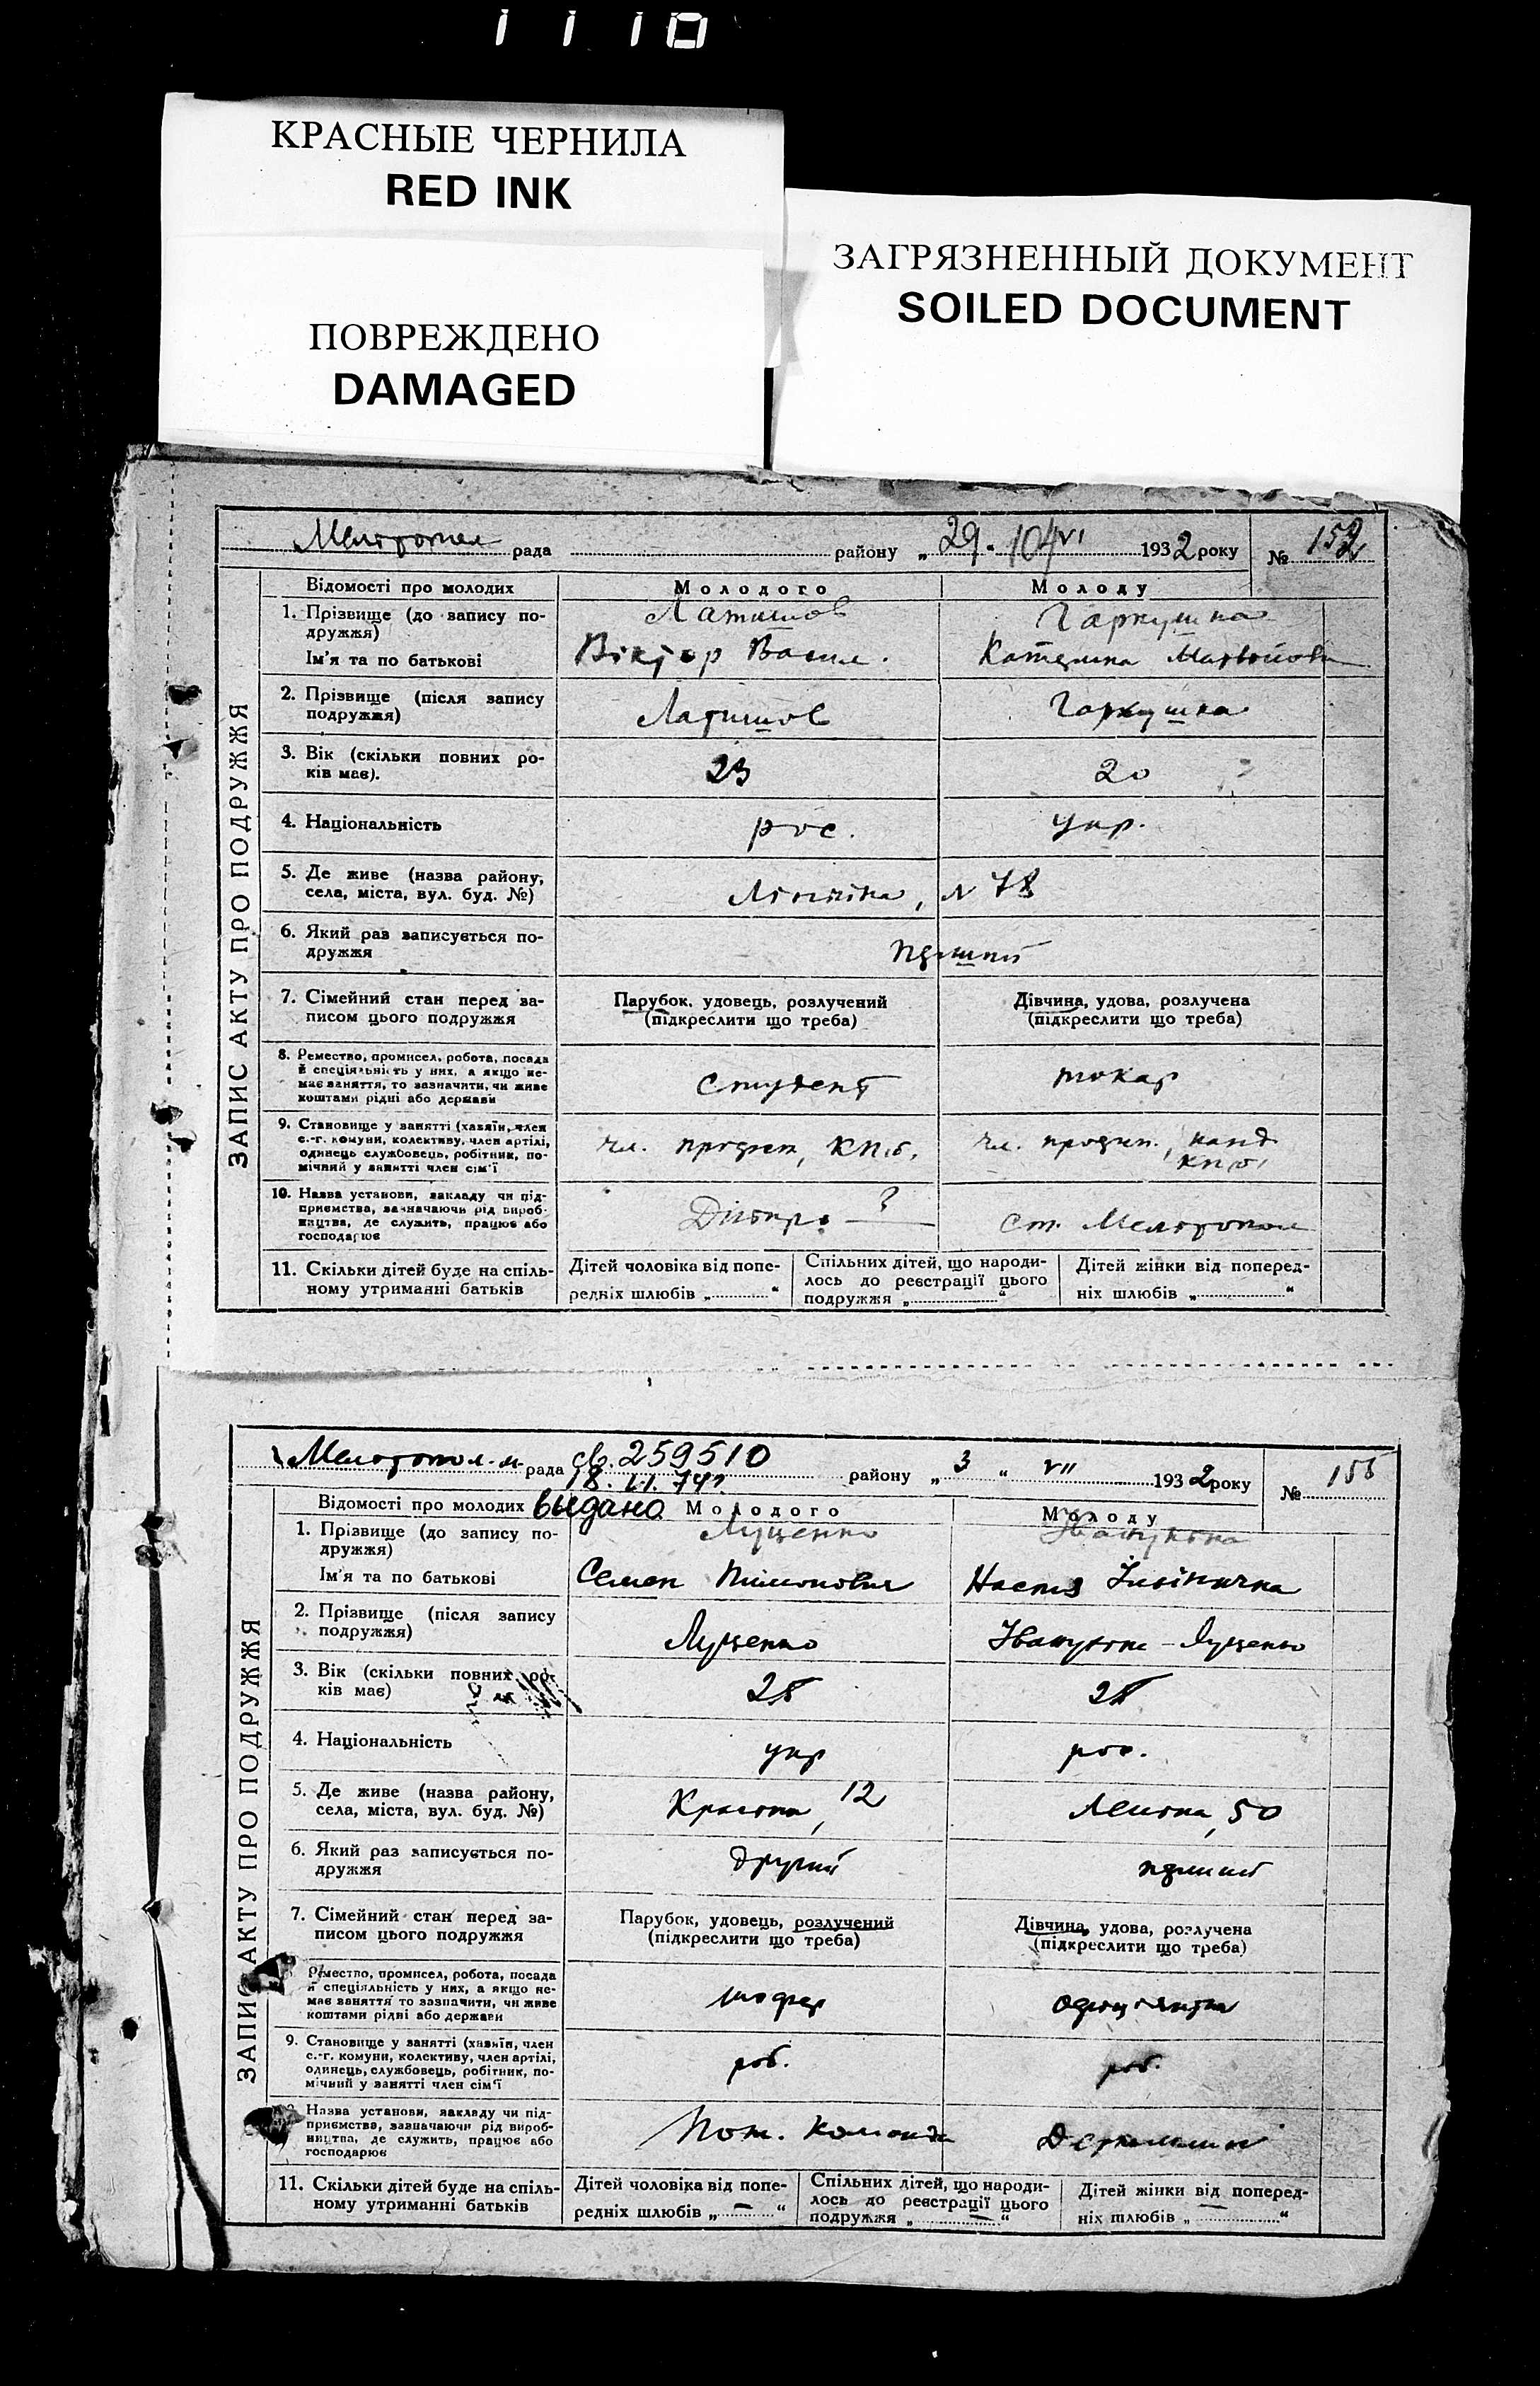 1110
КРАСНЫЕ ЧЕРНИЛА
RED INK
ПОВРЕЖДЕНО
DAMAGED
ЗАГРЯЗНЕННЫЙ ДОКУМЕНТ
SOILED DOCUMENT
ЗАПИС АКТУ ПРО ПОДРУЖЖЯ
рада району „29" VI 1932 року № 152
Відомості про молодих Молодого Молоду
1. Прізвище (до запису по-
дружжя) Латишов Гаркушка
Ім'я та по батькові Віктор Васил. Катерина
2. Прізвище (після запису
подружжя) Латишов Гаркушка
3. Вік (скільки повних ро-
ків має). 23 20
4. Національність рос. укр.
5. Де живе (назва району,
села, міста, вул. буд. №) , N 78
6. Який раз записується по-
дружжя перший
7. Сімейний стан перед за-
писом цього подружжя
Парубок, удовець, розлучений
(підкреслити що треба)
Дівчина, удова, розлучена
(підкреслити що треба)
8. Ремество, промисел, робота, посада
й спеціяльність у них, а якщо не-
має заняття, то зазначити, чи живе
коштами рідні або держави
студент токар
9. Становище у занятті (хазяїн, член
с.-г. комуни, колективу, член артілі,
одинець службовець, робітник, по-
мічний у занятті член сім'ї
чл. КП.б. чл. канд.
КП.б.
10. Назва установи, закладу чи під-
приємства, зазначаючи рід вироб-
ництва, де служить, працює або
господарює
ст.
11. Скільки дітей буде на спіль-
ному утриманні батьків
Дітей чоловіка від попе-
редніх шлюбів „ “
Спільних дітей, що народи-
лось до реєстрації цього
подружжя „ “
Дітей жінки від поперед-
ніх шлюбів „ “
ЗАПИС АКТУ ПРО ПОДРУЖЖЯ
рада св. 259510 району „3“ VII 1932 року № 155
выдано
Відомості про молодих Молодого Молоду
1. Прізвище (до запису по-
дружжя) Луценко
Ім'я та по батькові Семен Настя
2. Прізвище (після запису
подружжя) Луценко
3. Вік (скільки повних ро-
ків має) 28 28
4. Національність укр рос.
5. Де живе (назва району,
села, міста, вул. буд. №) , 12 Леніна, 50
6. Який раз записується по-
дружжя другий перший
7. Сімейний стан перед за-
писом цього подружжя
Парубок, удовець, розлучений
(підкреслити що треба)
Дівчина, удова, розлучена
(підкреслити що треба)
Ремество, промисел, робота, посада
й спеціяльність у них, а якщо не-
має заняття то зазначити, чи живе
коштами рідні або держави
шофер офіціянтка
9. Становище у занятті (хазяїн, член
с.-г. комуни, колективу, член артілі,
одинець, службовець, робітник, по-
мічний у занятті член сім'ї
роб. роб.
Назва установи, закладу чи під-
приємства, зазначаючи рід вироб-
ництва, де служить, працює або
господарює
Пож. команда
11. Скільки дітей буде на спіль-
ному утриманні батьків
Дітей чоловіка від попе-
редніх шлюбів „ — “
Спільних дітей, що народи-
лось до реєстрації цього
подружжя „ — “
Дітей жінки від поперед-
ніх шлюбів „ — “